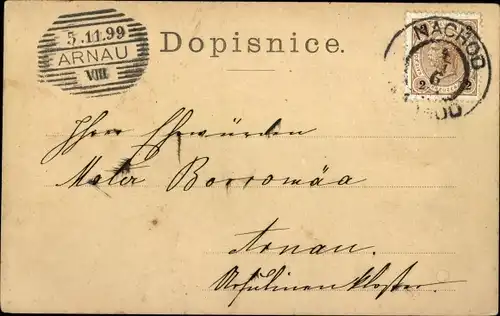 5.11.99
ARNAU
VIII
Dopisnice.
NACHOD
2 2
Ihrer Ehrwürden
Mater Borromäa
Arnau.
Ursulinenkloster.